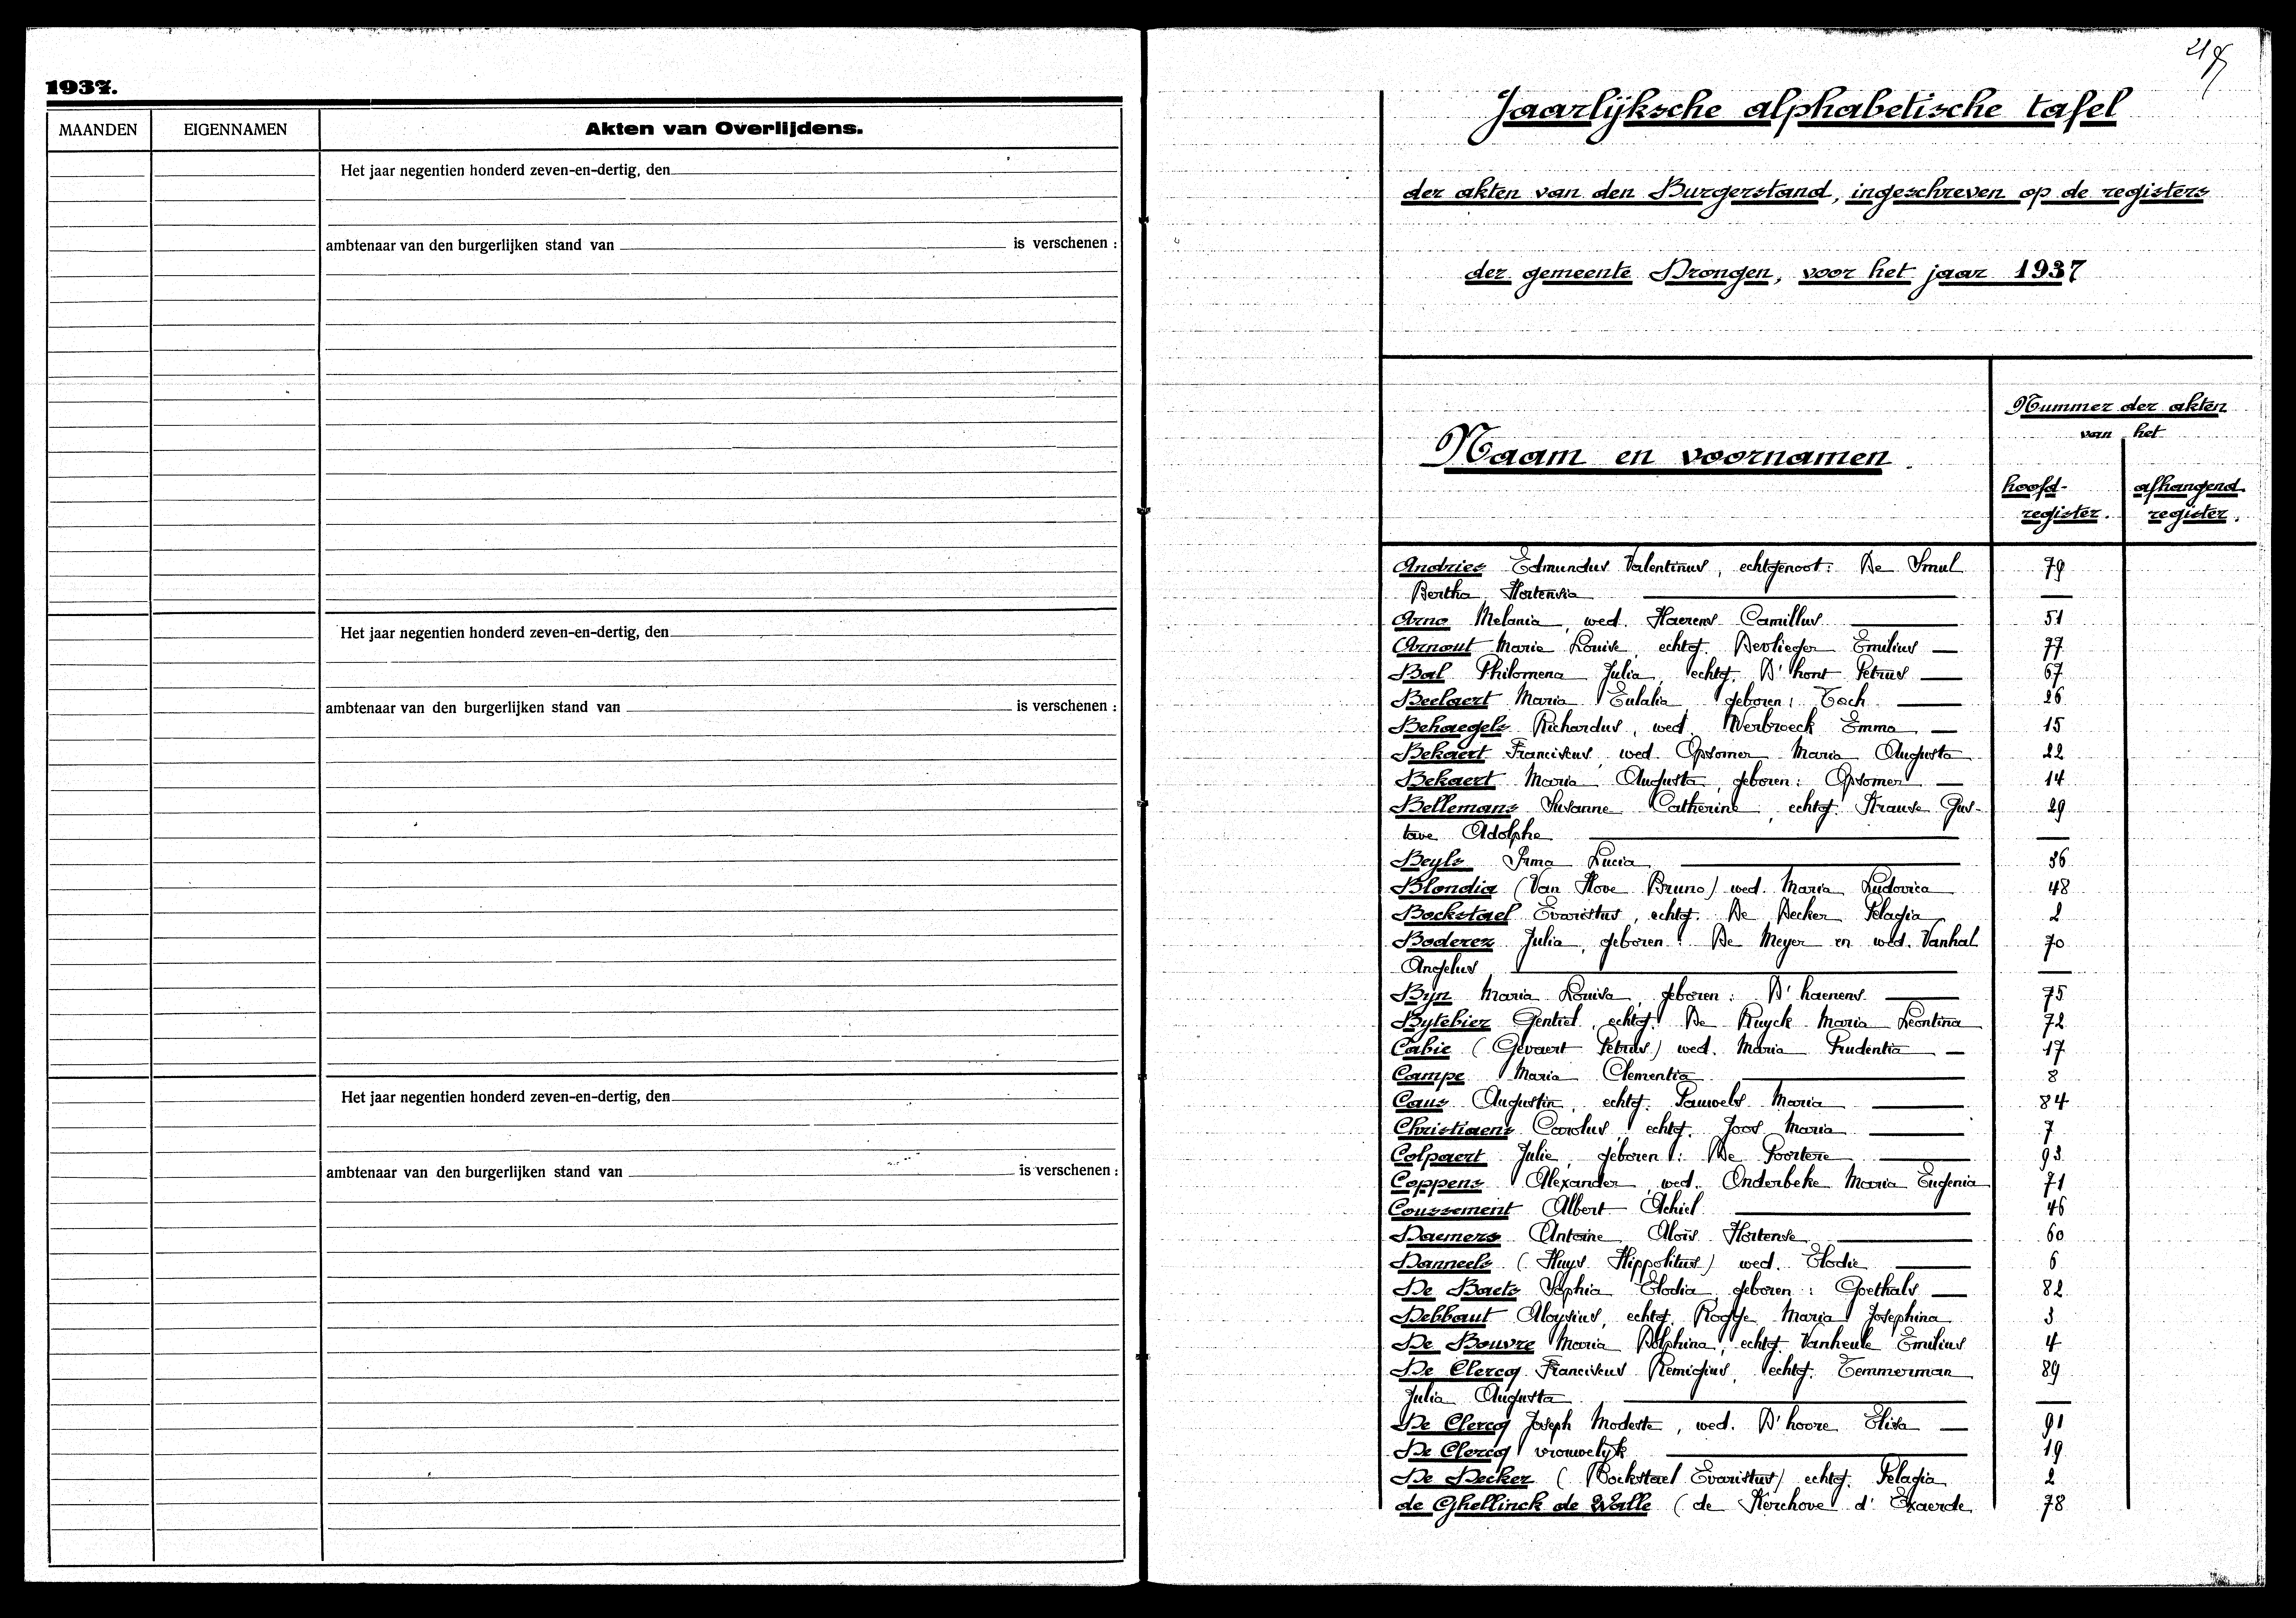 1937.
MAANDEN EIGENNAMEN Akten van Overlijdens.
Het jaar negentien honderd zeven-en-dertig, den
ambtenaar van den burgerlijken stand van is verschenen :
Het jaar negentien honderd zeven-en-dertig, den
ambtenaar van den burgerlijken stand van is verschenen :
Het jaar negentien honderd zeven-en-dertig, den
ambtenaar van den burgerlijken stand van is verschenen :
Jaarlijksche alphabetische tafel
der akten van den Burgerstand, ingeschreven op de registers
der gemeente Drongen, voor het jaar 1937
Nummer der akten
van het
Naam en voornamen.
hoofd- afhangend
register. register.
Andries Edmundus Valentinus, echtgenoot: De Smul 79
Bertha Hortensia —
Arno Melania, wed. Haerens Camillus — 51
Arnout Marie Louise, echtg. Devlieger Emilius — 77
Bal Philomena Julia, echtg. D'hont Petrus — 67
Beelaert Maria Eulalia, geboren: Toch — 26
Behaegels Richardus, wed. Werbroeck Emma — 15
Bekaert Franciscus, wed. Opsomer Maria Augusta 22
Bekaert Maria Augusta, geboren: Opsomer — 14
Bellemans Susanne Catherine, echtg. Strause Gus- 29
tave Adolphe —
Beyls Irma Lucia — 36
Blondia (Van Hove Bruno) wed. Maria Ludovica 48
Bockstael Evaristus, echtg. De Decker Pelagia 2
Boderez Julia, geboren: De Meyer en wed. Vanhal 70
Angelus —
Byn Maria Louisa, geboren: D'haenens — 75
Bytebier Gentiel, echtg. De Ruyck Maria Leontina 72
Cabie (Gevaert Petrus) wed. Maria Prudentia — 17
Campe Maria Clementia — 8
Caus Augustin, echtg. Pauwels Maria — 84
Christiaens Carolus, echtg. Joos Maria — 7
Colpaert Julie, geboren: De Poortere — 93
Coppens Alexander, wed. Onderbeke Maria Eugenia 71
Coussement Albert Achiel — 46
Daemers Antoine Aloïs Hortense — 60
Danneels (Huys Hippolitus) wed. Elodie — 6
De Baets Sophia Elodia, geboren: Goethals — 82
Debbaut Aloysius, echtg. Rogge Maria Josephina 3
De Bouvre Maria Delphina, echtg. Vanheule Emilius 4
De Clercq Franciscus Remigius, echtg. Temmerman 89
Julia Augusta —
De Clercq Joseph Modeste, wed. D'hoore Elisa — 91
De Clercq vrouwelijk — 19
De Decker (Bockstael Evaristus) echtg. Pelagia 2
de Ghellinck de Walle (de Kerchove d'Exaerde 78